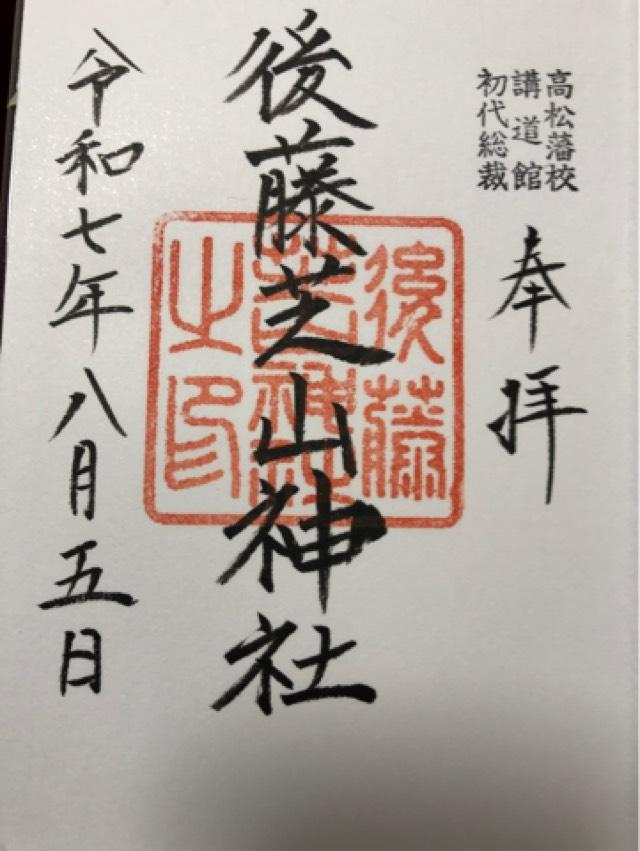 高松藩校
講道館
初代総裁
奉拝
後藤芝山神社
後藤
芝山神社
之印
令和七年八月五日